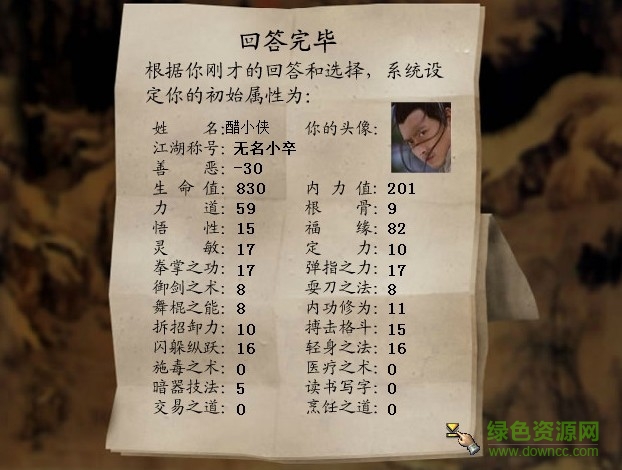 回答完毕
根据你刚才的回答和选择，系统设
定你的初始属性为：
姓 名:醋小侠 你的头像:
江湖称号: 无名小卒
善 恶: -30
生 命 值: 830 内 力 值: 201
力 道: 59 根 骨: 9
悟 性: 15 福 缘: 82
灵 敏: 17 定 力: 10
拳掌之功: 17 弹指之力: 17
御剑之术: 8 耍刀之法: 8
舞棍之能: 8 内功修为: 11
拆招卸力: 10 搏击格斗: 15
闪躲纵跃: 16 轻身之法: 16
施毒之术: 0 医疗之术: 0
暗器技法: 5 读书写字: 0
交易之道: 0 烹饪之道: 0
绿色资源网
www.downcc.com